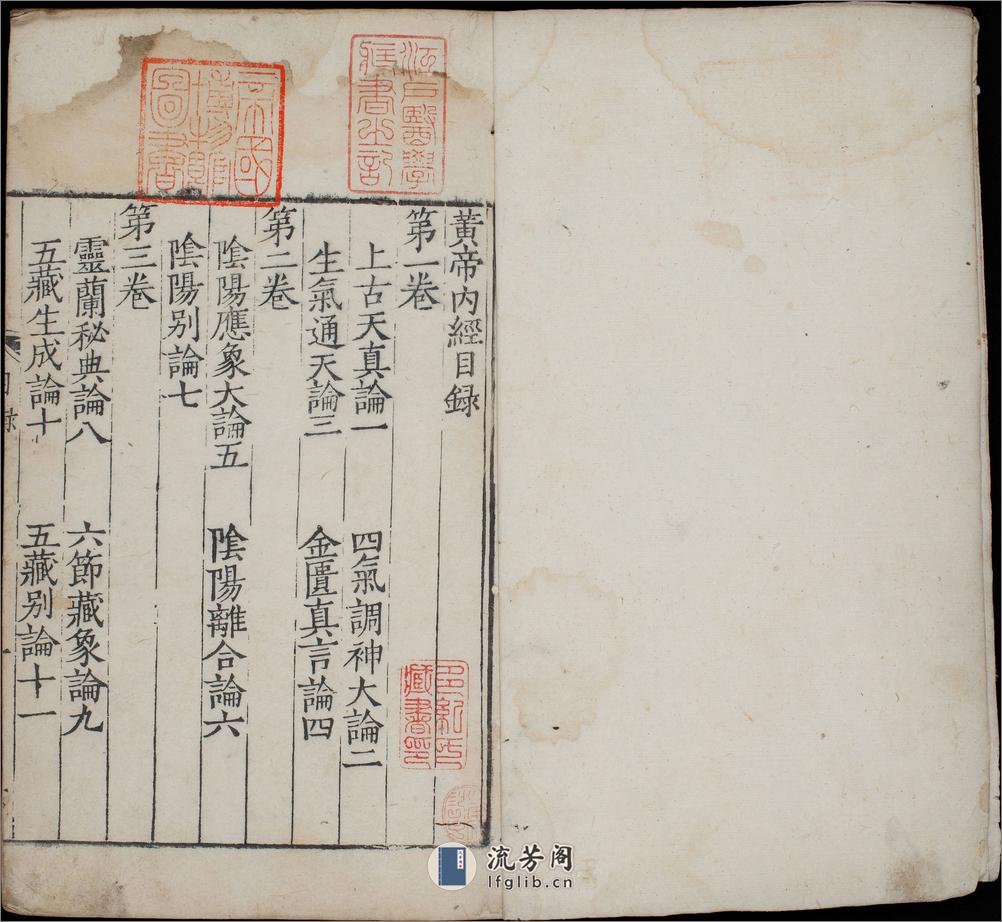 黃帝内經目録
第一卷
上古天真論一 四氣調神大論二
生氣通天論三 金匱真言論四
第二卷
陰陽應象大論五 陰陽離合論六
陰陽别論七
第三卷
靈蘭秘典論八 六節藏象論九
五藏生成論十 五藏别論十一
目録
江戸醫學
藏書之記
帝國
博物館
圖書
藏書印
流芳阁
lfglib.cn